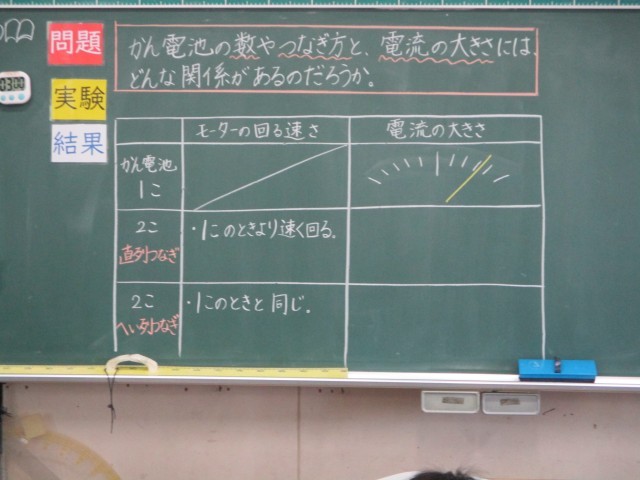 問題
がん電池の数やつなぎ方と、電流の大きさには、
どんな関係があるのだろうか。
03:00
実験
結果
モーターの回る速さ
電流の大きさ
がん電池
1こ
2こ
直列つなぎ
・1このときより速く回る。
2こ
へい列つなぎ
・1このときと同じ。